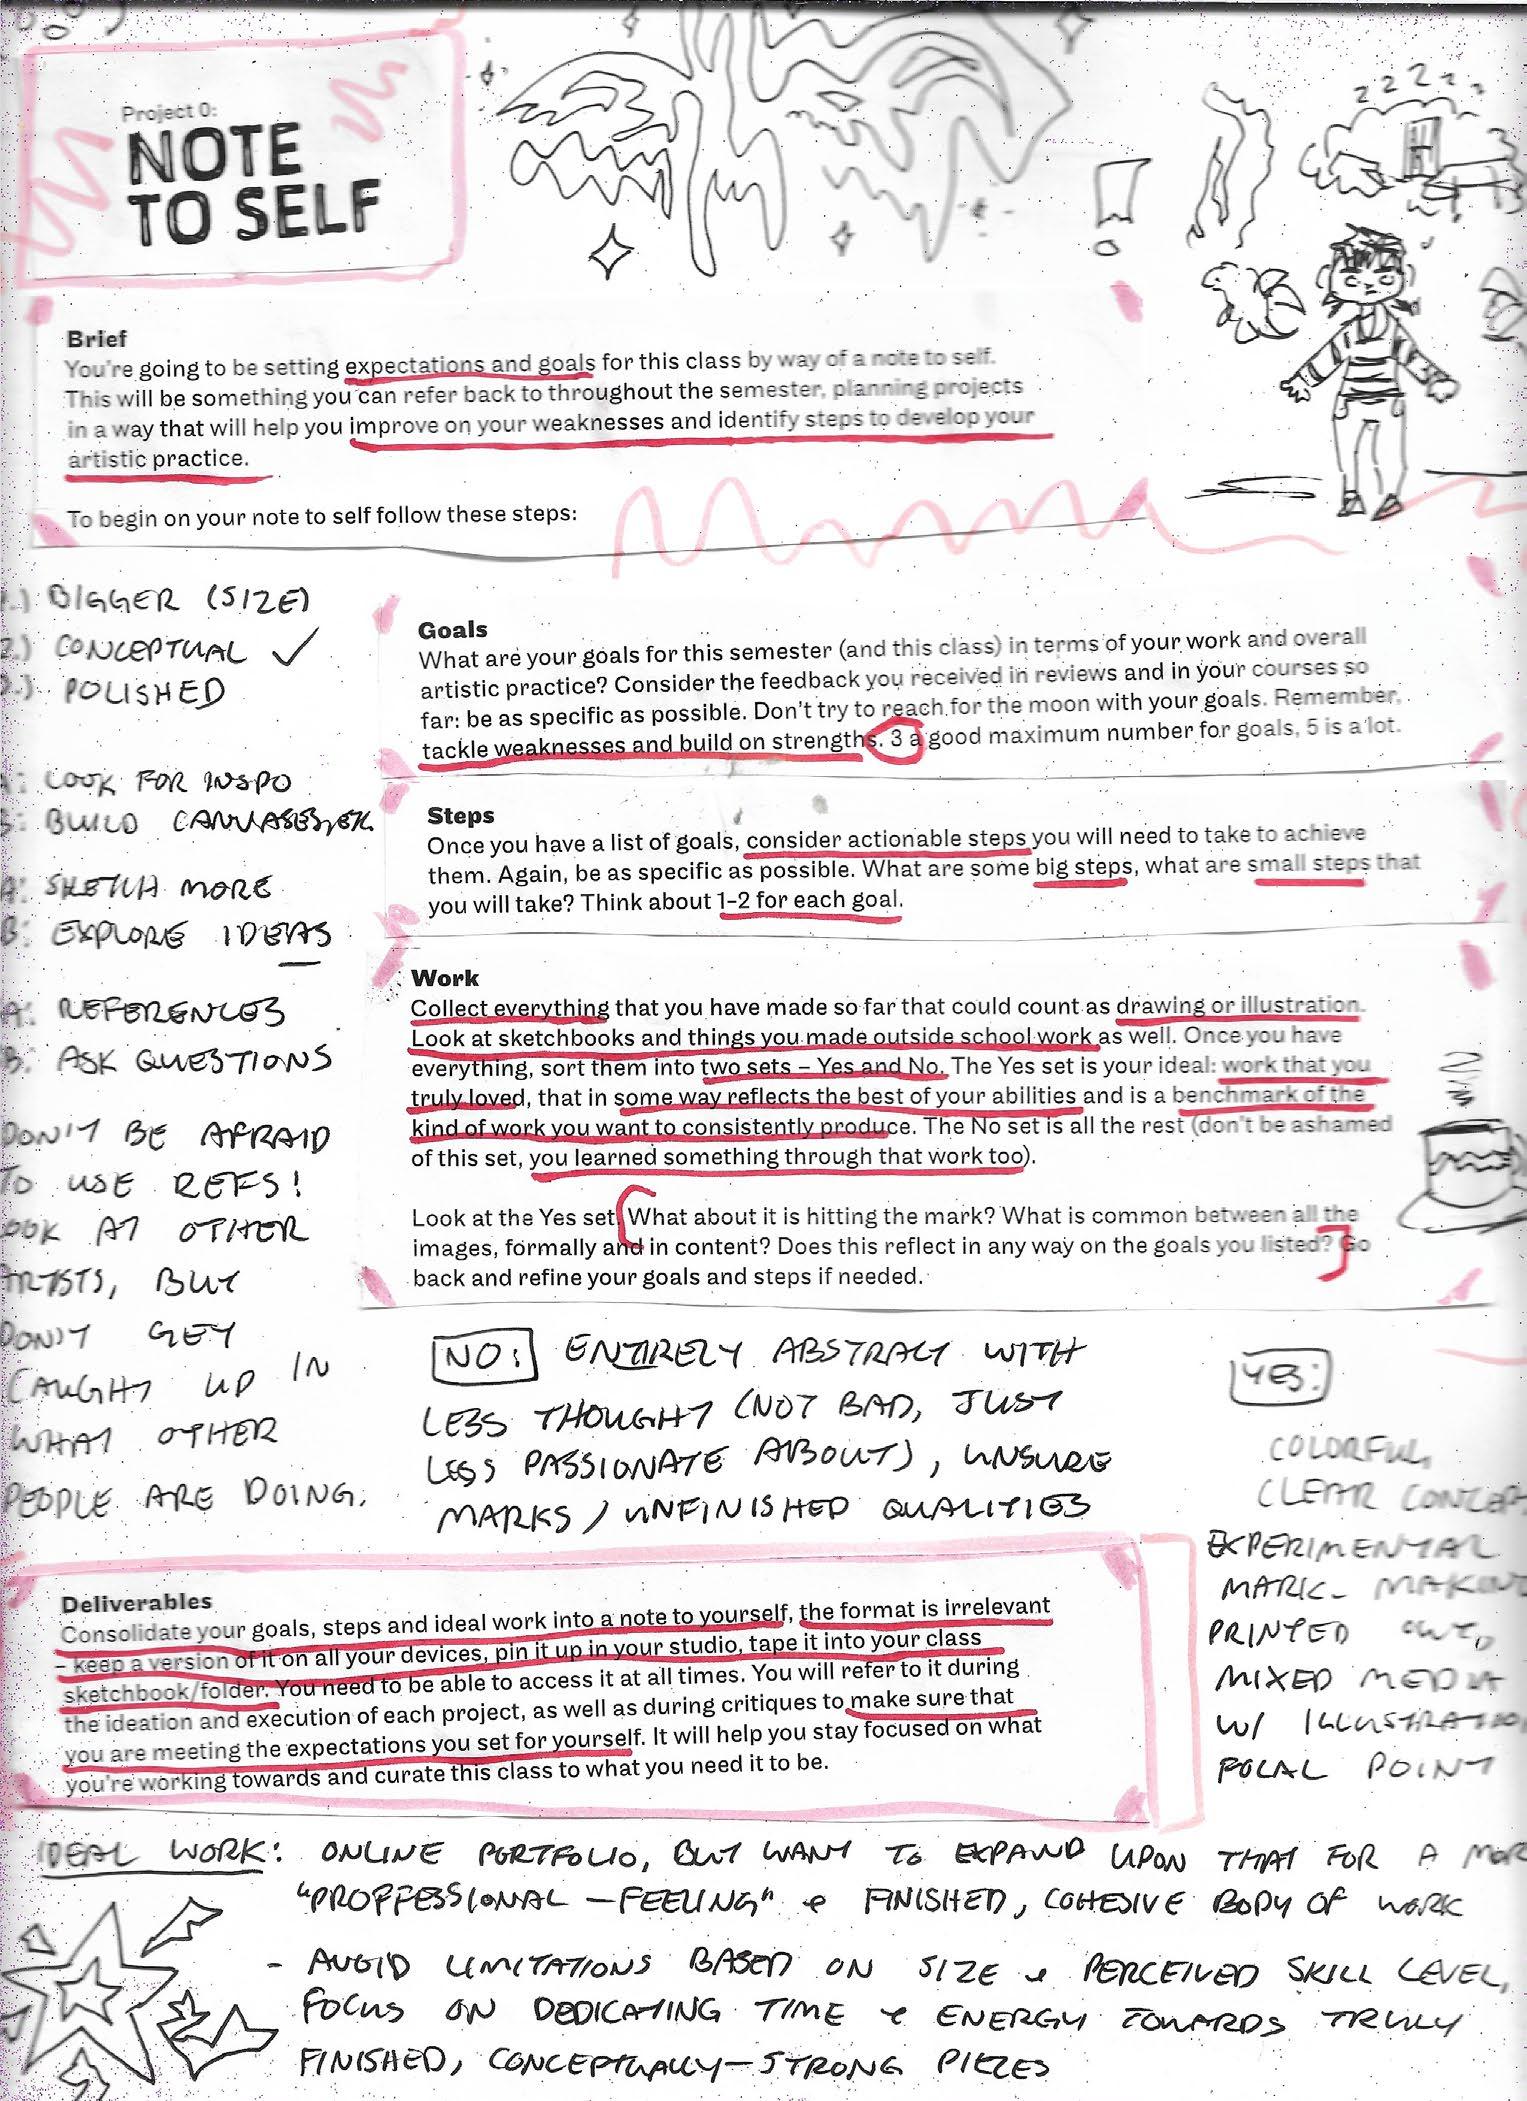 Project 0:
NOTE
TO SELF
Z Z Z
Brief
You're going to be setting expectations and goals for this class by way of a note to self.
This will be something you can refer back to throughout the semester, planning projects
in a way that will help you improve on your weaknesses and identify steps to develop your
artistic practice.
To begin on your note to self follow these steps:
1.) BIGGER (SIZE)
2.) CONCEPTUAL ✓
3.) POLISHED
A: LOOK FOR INSPO
B: BUILD CANVASES, ETC.
A: SKETCH MORE
B: EXPLORE IDEAS
A: REFERENCES
B: ASK QUESTIONS
DON'T BE AFRAID
TO USE REFS!
LOOK AT OTHER
ARTISTS, BUT
DON'T GET
CAUGHT UP IN
WHAT OTHER
PEOPLE ARE DOING.
Goals
What are your goals for this semester (and this class) in terms of your work and overall
artistic practice? Consider the feedback you received in reviews and in your courses so
far: be as specific as possible. Don't try to reach for the moon with your goals. Remember,
tackle weaknesses and build on strengths. 3 a good maximum number for goals, 5 is a lot.
Steps
Once you have a list of goals, consider actionable steps you will need to take to achieve
them. Again, be as specific as possible. What are some big steps, what are small steps that
you will take? Think about 1–2 for each goal.
Work
Collect everything that you have made so far that could count as drawing or illustration.
Look at sketchbooks and things you made outside school work as well. Once you have
everything, sort them into two sets – Yes and No. The Yes set is your ideal: work that you
truly loved, that in some way reflects the best of your abilities and is a benchmark of the
kind of work you want to consistently produce. The No set is all the rest (don't be ashamed
of this set, you learned something through that work too).
Look at the Yes set. What about it is hitting the mark? What is common between all the
images, formally and in content? Does this reflect in any way on the goals you listed? Go
back and refine your goals and steps if needed.
NO: ENTIRELY ABSTRACT WITH
LESS THOUGHT (NOT BAD, JUST
LESS PASSIONATE ABOUT), UNSURE
MARKS / UNFINISHED QUALITIES
YES:
COLORFUL,
CLEAR CONCEPT
EXPERIMENTAL
MARK-MAKING
PRINTED OUT,
MIXED MEDIA
W/ ILLUSTRATION
FOCAL POINT
Deliverables
Consolidate your goals, steps and ideal work into a note to yourself, the format is irrelevant
– keep a version of it on all your devices, pin it up in your studio, tape it into your class
sketchbook/folder. You need to be able to access it at all times. You will refer to it during
the ideation and execution of each project, as well as during critiques to make sure that
you are meeting the expectations you set for yourself. It will help you stay focused on what
you're working towards and curate this class to what you need it to be.
IDEAL WORK: ONLINE PORTFOLIO, BUT WANT TO EXPAND UPON THAT FOR A MORE
"PROFFESSIONAL-FEELING" & FINISHED, COHESIVE BODY OF WORK
- AVOID LIMITATIONS BASED ON SIZE & PERCEIVED SKILL LEVEL,
FOCUS ON DEDICATING TIME & ENERGY TOWARDS TRULY
FINISHED, CONCEPTUALLY-STRONG PIECES